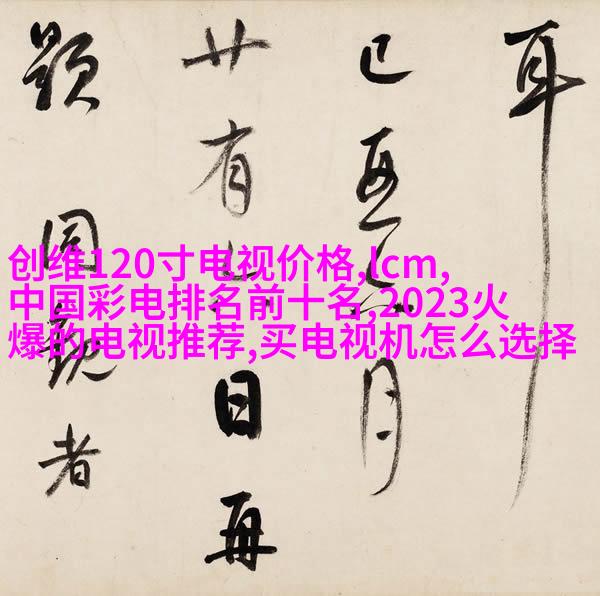 耳
已亥月
廿有日再
題同觀者
创维120寸电视价格,lcm,
中国彩电排名前十名,2023火
爆的电视推荐,买电视机怎么选择